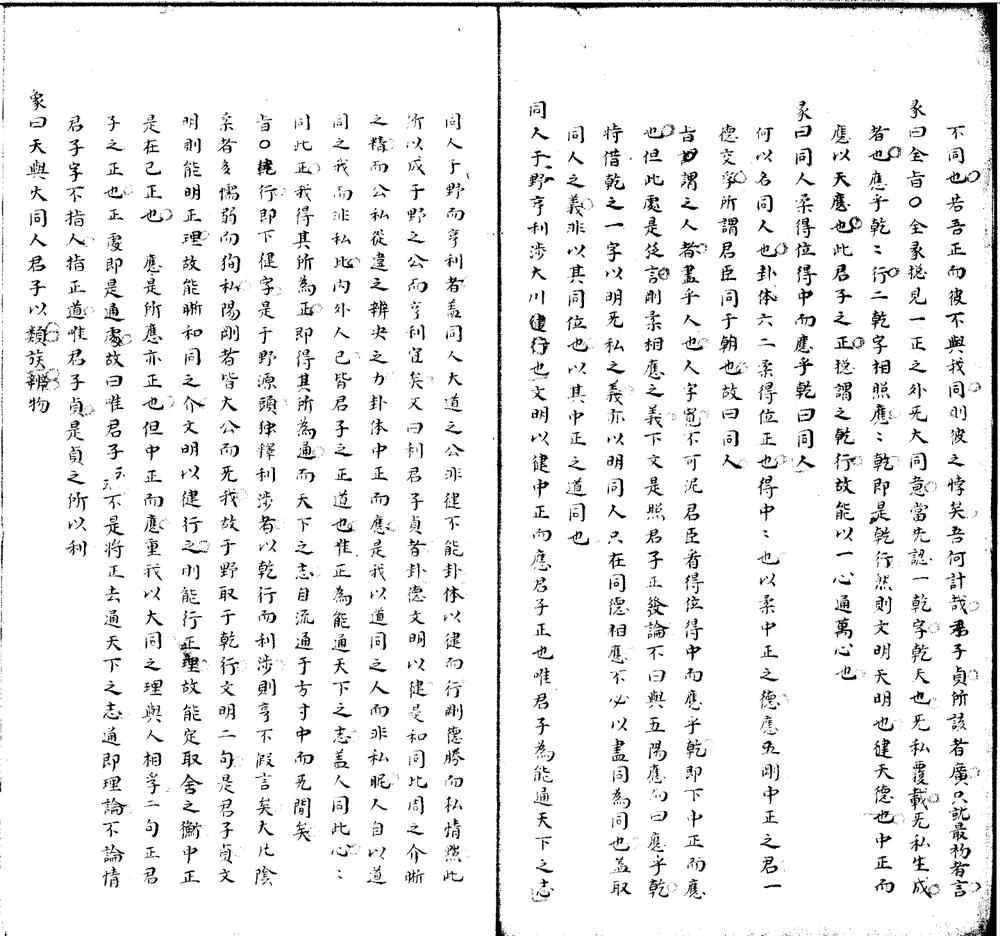 不同也若吾正而彼不與我同則彼之悖矣吾何計哉君子貞所該者廣只就最初者言
彖曰全旨○全彖總見一正之外旡大同意當先認一乾字乾天也旡私覆載旡私生成
者也應乎乾乾行二乾字相照應應乾即是乾行然則文明天明也健天德也中正而
應以天應也此君子之正總謂之乾行故能以一心通萬心也
彖曰同人柔得位得中而應乎乾曰同人
何以名同人也卦体六二柔得位正也得中中也以柔中正之德應五剛中正之君一
德交孚所謂君臣同于朝也故曰同人
旨謂之人者盡乎人也人字寬不可泥君臣看得位得中而應乎乾即下中正而應
也但此處是從言剛柔相應之義下文是照君子正發論不曰與五陽應而曰應乎乾
特借乾之一字以明旡私之義亦以明同人只在同德相應不必以盡同為同也盖取
同人之義非以其同位也以其中正之道同也
同人于野亨利涉大川健行也文明以健中正而應君子正也唯君子為能通天下之志
同人于野而亨利者盖同人大道之公非健不能卦体以健而行剛德勝而私情㸃此
所以成于野之公而亨利宜矣又曰利君子貞者卦德文明以健是和同比周之介晰
之精而公私從違之辨决之力卦体中正而應是我以道同之人而非私昵人自以道
同之我而非私比内外人己皆君子之正道也惟正為能通天下之志盖人同此心心
同此正我得其所為正即得其所為通而天下之志自流通于方寸中而旡間矣
旨○乾行即下健字是于野源頭独釋利涉者以乾行而利涉則亨不假言矣大凡陰
柔者多懦弱而狥私陽剛者皆大公而旡我故于野取于乾行文明二句是君子貞文
明則能明正理故能晰和同之介文明以健行之則能行正理故能定取舍之衡中正
是在己正也應是所應亦正也但中正而應重我以大同之理與人相孚二句正君
子之正也正處即是通處故曰唯君子云云不是將正去通天下之志通即理論不論情
君子字不指人指正道唯君子貞是貞之所以利
象曰天與火同人君子以類族辨物